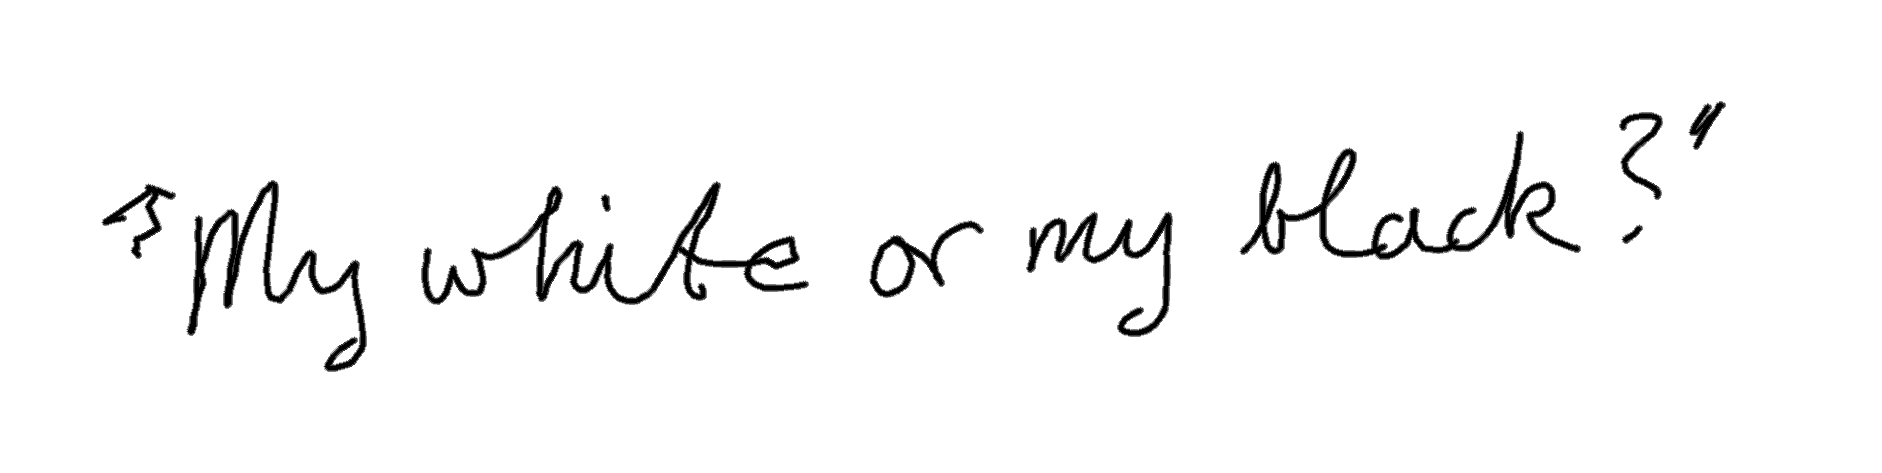 "My white or my black?"